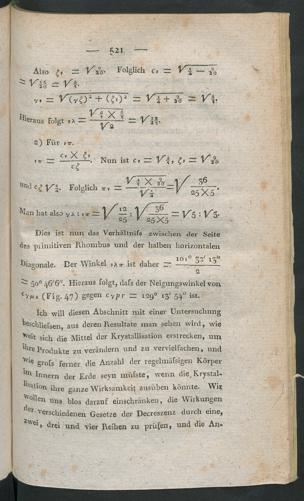 — 521 —
Also ς, = √9/20. Folglich c, = √
= √ = √
γ, = √(γς)² + (ς,)² = √¼ + 9/20 = √
Hieraus folgt ,λ =
2) Für ,π.
,π = c, × ς, / cς. Nun ist c, = √ ς, = √9/20
und cς √ Folglich π, = = √36/25×5.
Man hat also γλ : ,π = √12/25 : √36/25×5 = √5 : √3.
Dies ist nun das Verhältniss zwischen der Seite
des primitiven Rhombus und der halben horizontalen
Diagonale. Der Winkel ,λπ ist daher = 101° 32' 13"/2
= 50° 46' 6". Hieraus folgt, dass der Neigungswinkel von
(Fig. 47) gegen cγpr = 129° 13' 54" ist.
Ich will diesen Abschnitt mit einer Untersuchung
beschliessen, aus deren Resultate man sehen wird, wie
weit sich die Mittel der Krystallisation erstrecken, um
ihre Produkte zu verändern und zu vervielfachen, und
wie gross ferner die Anzahl der regelmässigen Körper
im Innern der Erde seyn müsste, wenn die Krystal-
lisation ihre ganze Wirksamkeit ausüben könnte. Wir
wollen uns blos darauf einschränken, die Wirkungen
der verschiedenen Gesetze der Decreszenz durch eine,
zwei, drei und vier Reihen zu prüfen, und die An-